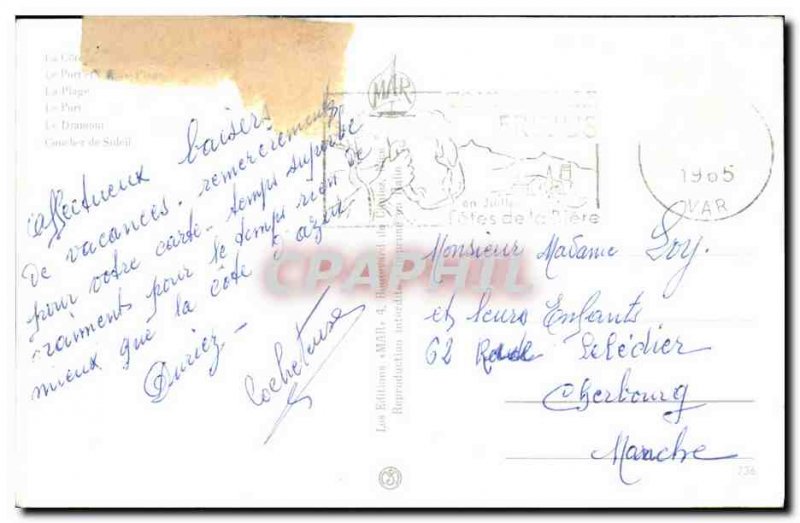 La Côte
Le Port
La Plage
Le Port
Le Dramont
Coucher de Soleil
affectueux baisers
de vacances. remerciements
pour votre carte. temps superbe
vraiments pour le temps rien de
mieux que la côte d'azur
Duriez
MAR
FREJUS
en Juillet
Fêtes de la Bière
1965
VAR
Les Editions «MAR» 4, Boulevard
Reproduction interdite
CPAPHIL
Monsieur Madame Loy.
et leurs Enfants
62 Rue
Cherbourg
Manche
736